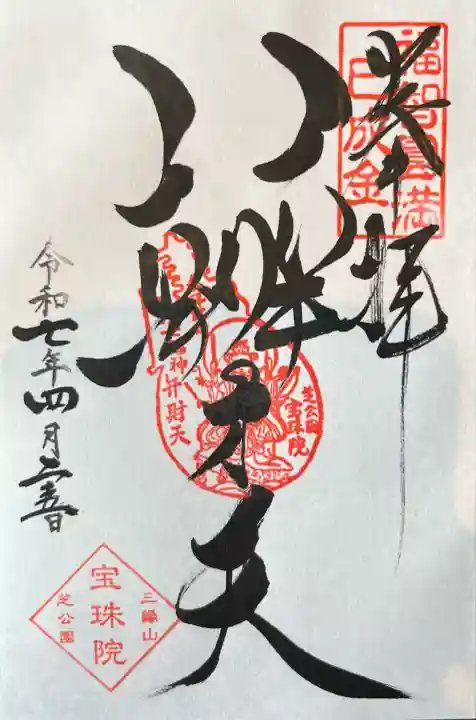 福智圓満
巳成金
奉拝
辨才天
七福神
弁財天
芝公園
宝珠院
令和七年四月 五日
三縁山
宝珠院
芝公園